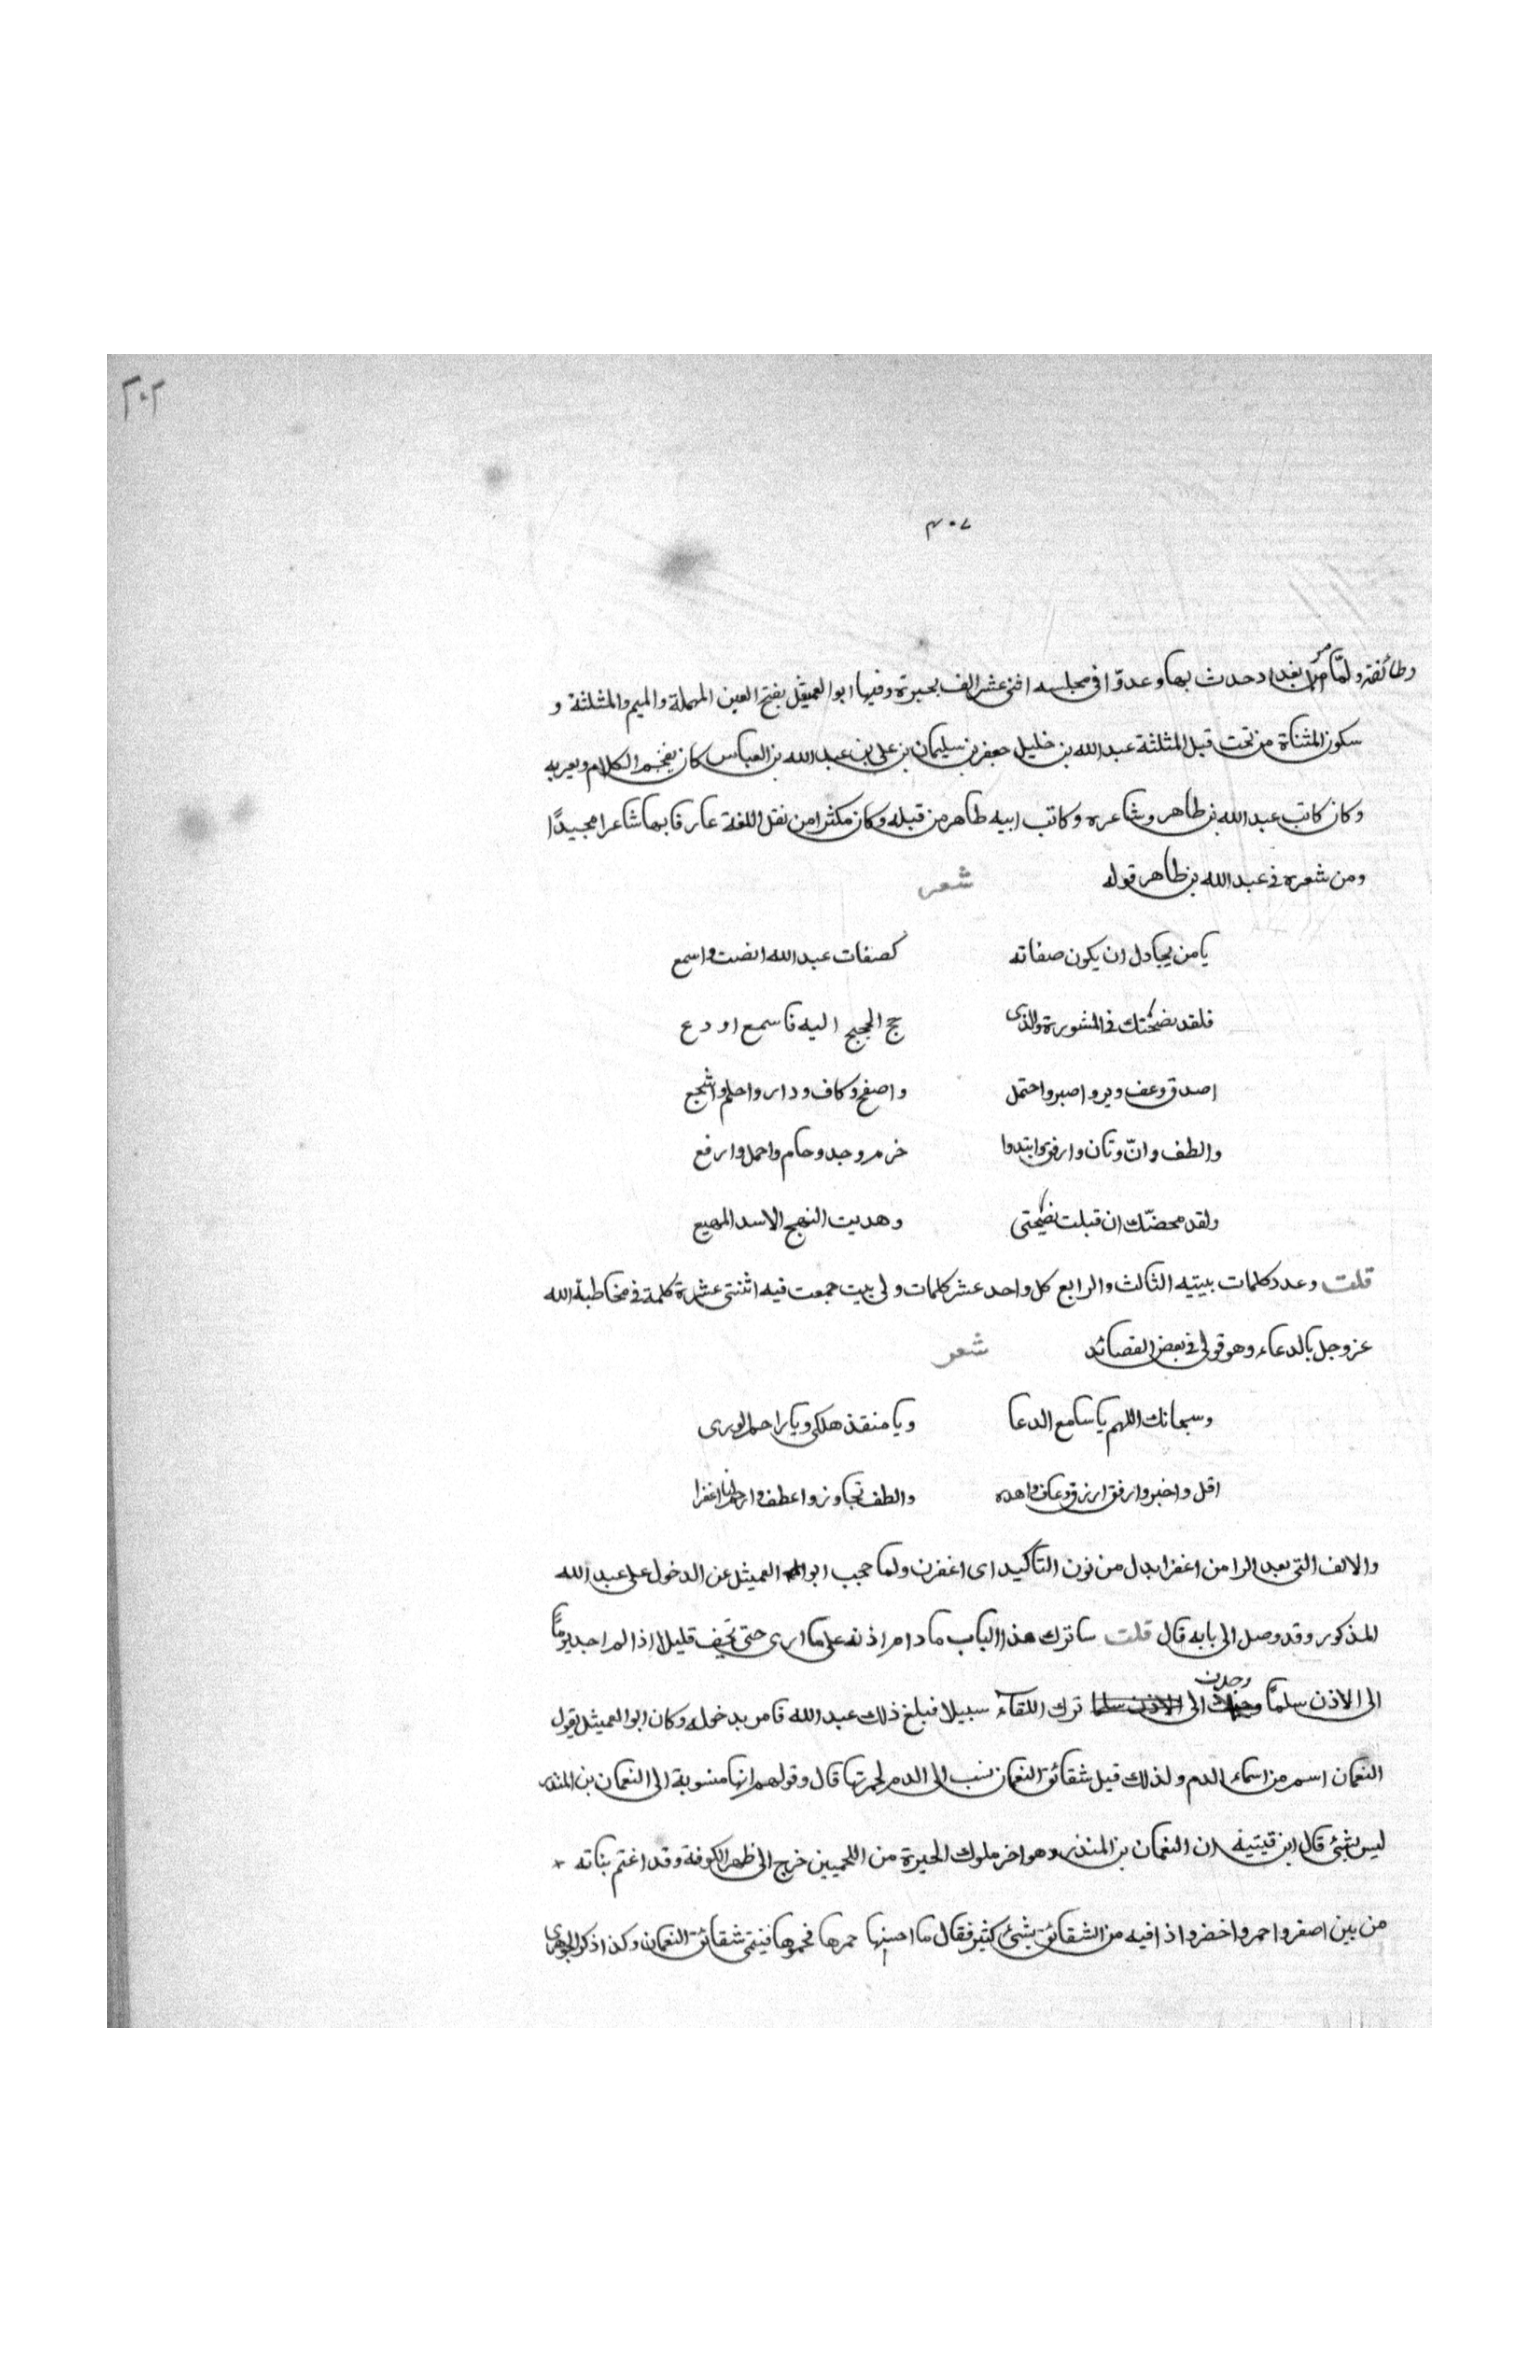 ٢٠٢
٣٠٧
وطائفة ولمّا مر ببغداد حدث بها وعدوّا في مجلسه اثنى عشر الف بحبرة وفيها ابو العميثل بفتح العين المهملة والميم والمثلثة و
سكون المثناة من تحت قبل المثلثة عبد الله بن خليل جعفر بن سليمان بن على بن عبد الله بن العباس كان يفخم الكلام ويعربه
وكان كاتب عبد الله بن طاهر وشاعره وكاتب ابيه طاهر من قبله وكان مكثرا من نقل اللغة عارفا بها شاعرا مجيدًا
ومن شعره في عبد الله بن طاهر قوله شعر
يا من يحادل ان يكون صفاته كصفات عبد الله انصت واسمع
فلقد نضحتك في المشورة والذى حج الحجيج اليه فاسمع او دع
اصدق وعف وبر واصبر واحتمل واصفح وكاف ودار واحلم واشجع
والطف وانّ وتان وارفق وابتدوا خرم وجد وحام واحمل وارفع
ولقد محضتك ان قبلت نضيحتى وهديت النهج الاسد المهيع
قلت وعدد كلمات بيتيه الثالث والرابع كل واحد عشر كلمات ولى بيت جمعت فيه اثنتى عشرة كلمة في مخاطبة الله
عز وجل بالدعاء وهو قولى في بعض القصائد شعر
وسبحانك اللهم يا سامع الدعا ويا منقذ هلكى ويا راحم الورى
اقل واخبر وارفق ارزق وعاف واهده والطف تجاوز واعطف وارحمنا اغفرا
والالف التى بعد الرا من اغفرا بدل من نون التاكيد اى اغفرن ولما حجب ابو العميثل عن الدخول على عبد الله
المذكور وقد وصل الى بابه قال قلت ساترك هذا الباب ما دام اذنه على ما ارى حتى تخف قليلا اذا لم اجد يومًا
الى الاذن سلمًا وجدت الى ترك اللقاء سبيلا فبلغ ذلك عبد الله فامر بدخوله وكان ابو العميثل يقول
النعمان اسم من اسماء الدم ولذلك قيل شقائق النعمان نسب الى الدم لحمرتها قال وقولهم انها منسوبة الى النعمان بن المنذر
ليس بشئ قال ابن قيتيه ان النعمان بن المنذر وهو اخر ملوك الحيرة من اللخميين خرج الى ظهر الكوفة وقد اغتم بناته
من بين اصفر واحمر واخضر واذا فيه من الشقائق بشئ كثير فقال ما احسنها حمرها فحموها فيتمى شقائق النعمان وكذا ذكر الجوهرى